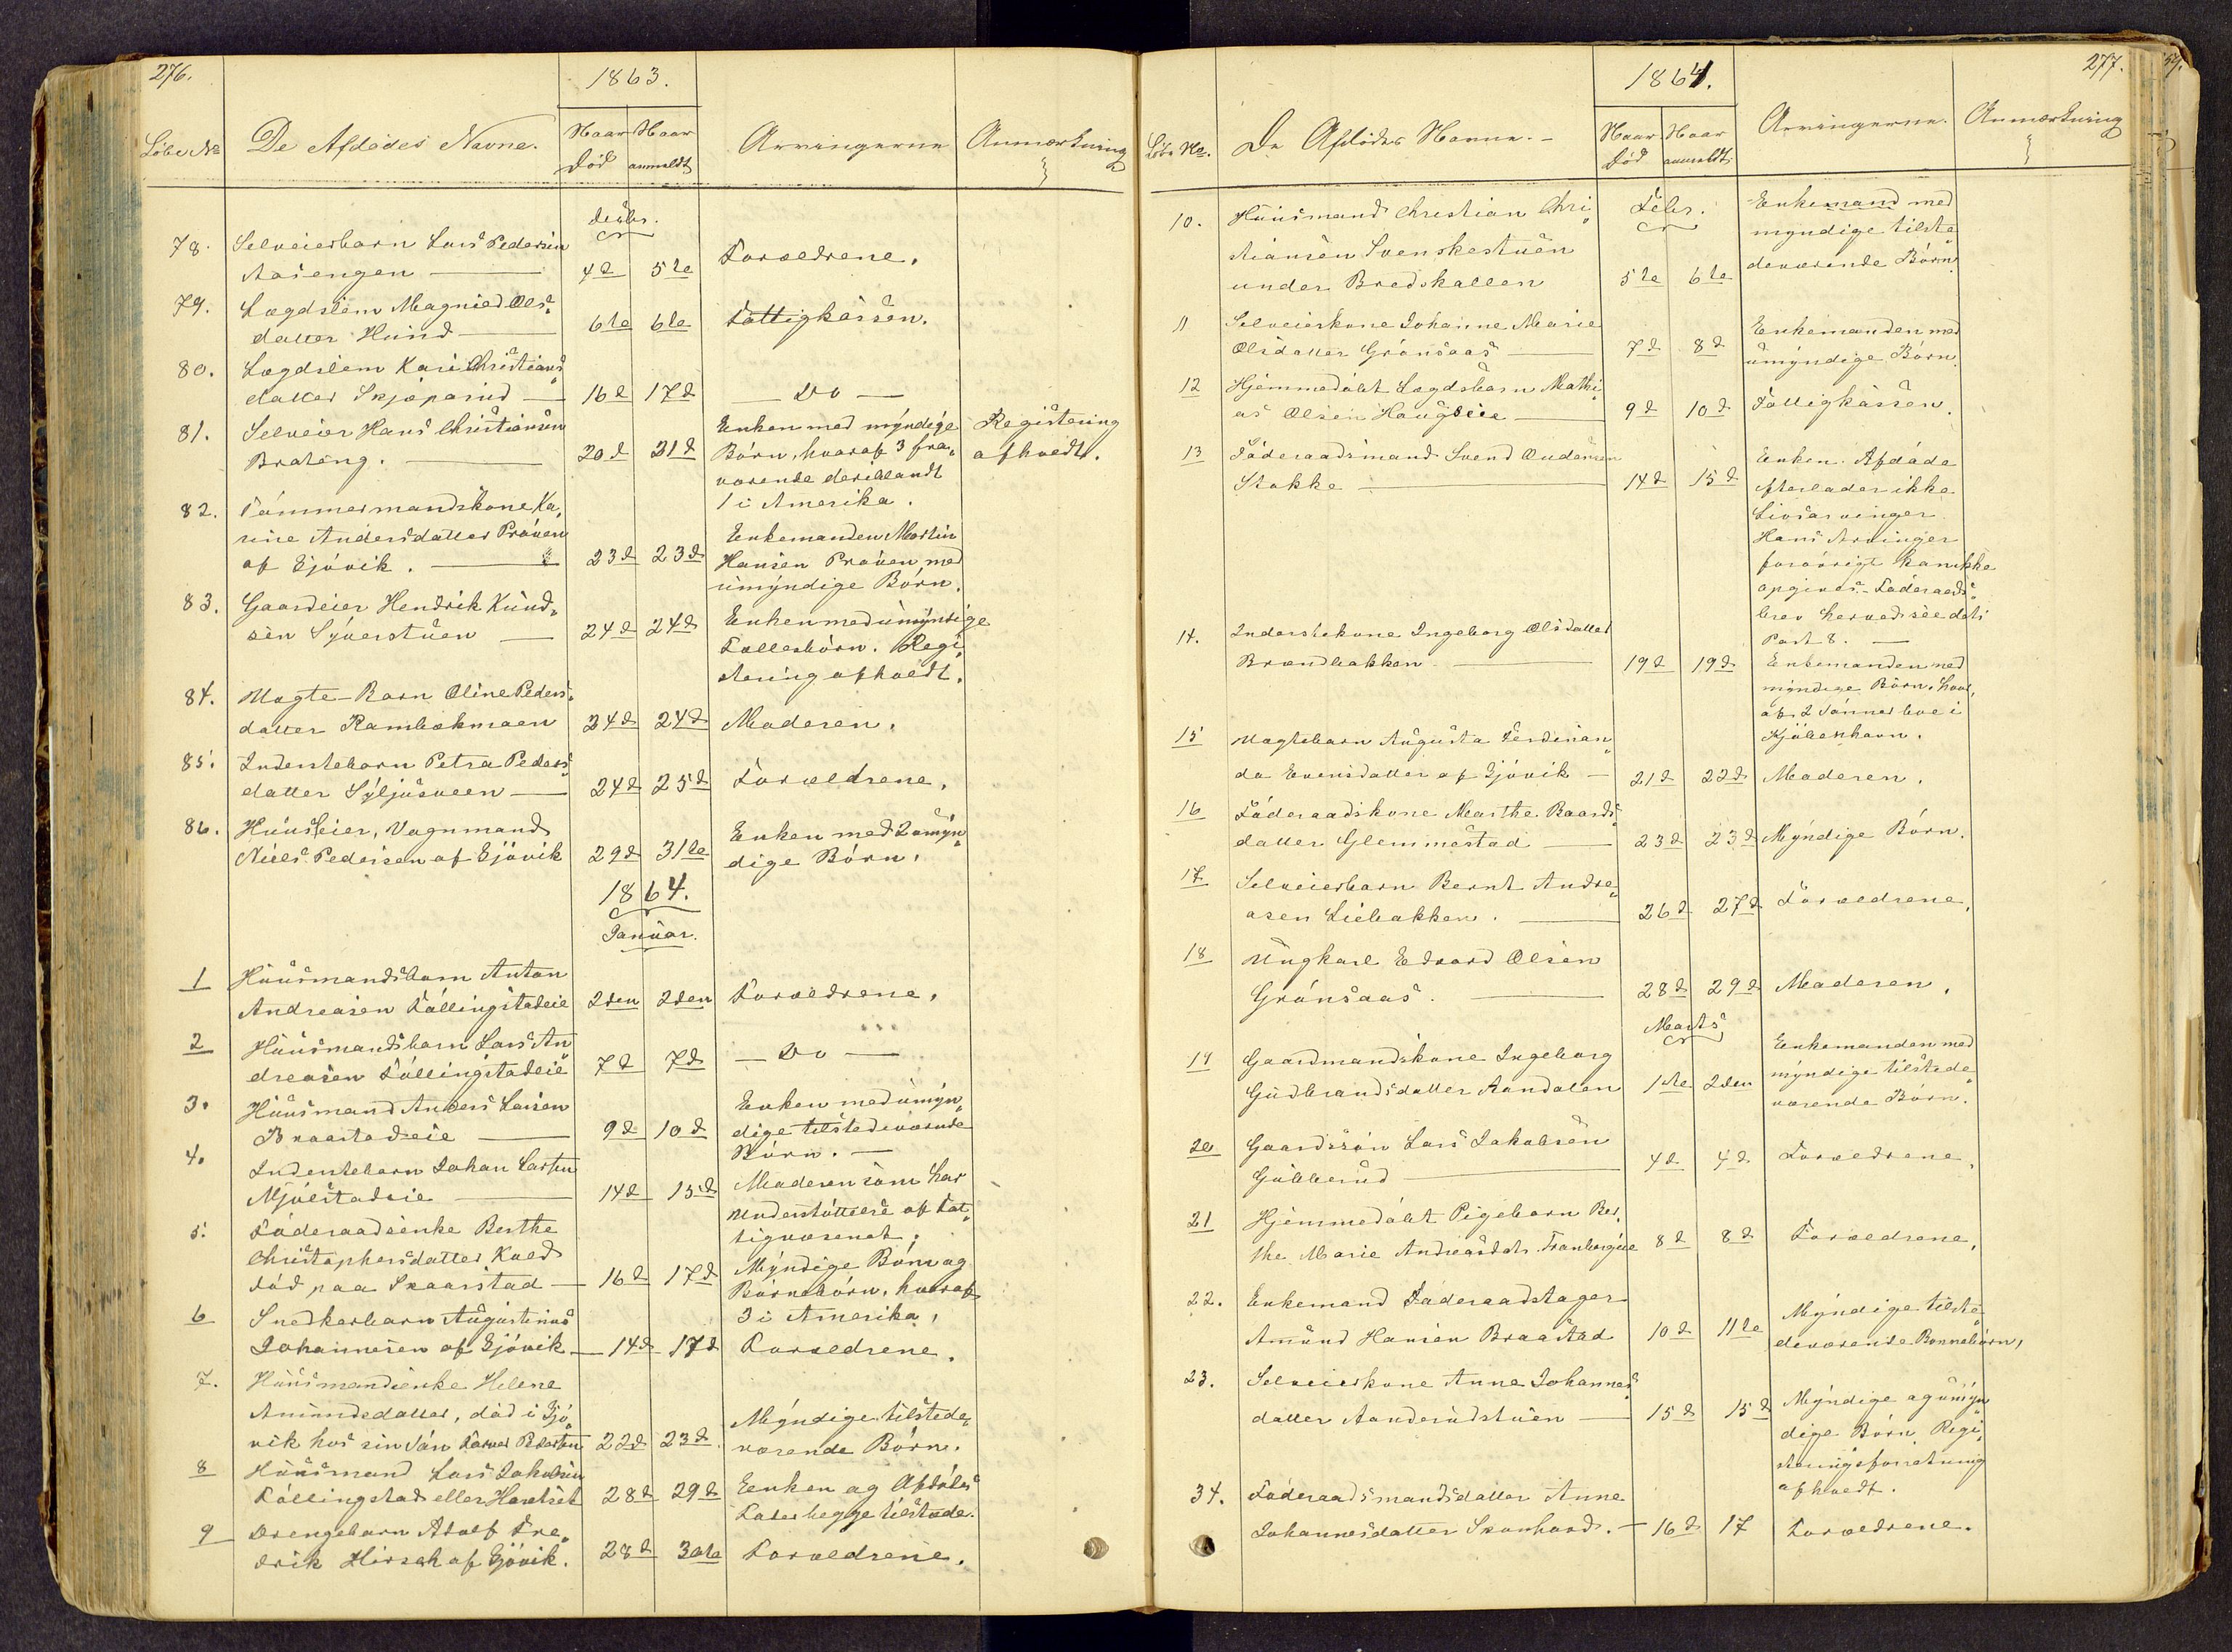 276.
1863.
Löbe No
De Afdödes Navne.
Naar Död
Naar anmeldt
Arvingerne
Anmærkning
Decbr.
78. Selveierbarn Lars Pedersen
Aasengen — 4d 5te Forældrene.
79. Lægdslem Magnild Ols-
datter Hund — 6te 6te Fattigkassen.
80. Lægdslem Kari Christians-
datter Skjøparud — 16d 17d — Do —
81. Selveier Hans Christiansen
Brateng. — 20d 21d
Enken med myndige
Börn, hvoraf 3 fra-
værende deriblandt
1 i Amerika.
Registering
afholdt.
82. Tömmermandskone Ka-
rine Andersdatter Pröven
af Gjövik. — 23d 23d
Enkemanden Martin
Hansen Pröven med
umyndige Börn.
83. Gaardeier Hendrik Knud-
sen Syverstuen — 24d 24d
Enken med umyndige
Fællesbörn. Regi-
stering afholdt.
84. Uægte-Barn Oline Peders-
datter Rambekmoen 24d 24d Moderen.
85. Inderstebarn Petra Peders-
datter Syljusveen — 24d 25d Forældrene.
86. Huuseier, Vognmand
Niels Pedersen af Gjövik 29d 31te
Enken med 2 umyn-
dige Börn.
1864.
Januar.
1 Huusmandsbarn Anton
Andreasen Föllingstadeie 2den 2den Forældrene.
2 Huusmandsbarn Lars An-
dreasen Föllingstadeie 7d 7d — Do —
3. Huusmand Anders Larsen
Braastadeie — 9d 10d
Enken med umyn-
dige tilstedeværende
Börn. —
4. Inderstebarn Johan Larsen
Mjölstadeie — 14d 15d
Moderen som har
Understöttelse af Fat-
tigvæsenet.
5. Föderaadsenke Berthe
Christophersdatter Kold
död paa Skaarstad — 16d 17d
Myndige Börn og
Börnebörn, hvoraf
3 i Amerika.
6 Snedkerbarn Augustinus
Johannesen af Gjövik — 14d 17d Forældrene.
7. Huusmandsenke Helene
Amundsdatter, död i Gjö-
vik hos sin Sön 22d 23d
Myndige tilstede-
værende Börn.
8 Huusmand Lars Jakobsen
Föllingstad eller 28d 29d
Enken og Afdödes
Fader begge tilstede.
9 Drengebarn Adolf Fre-
drik Hirsch af Gjövik. 28d 30te Forældrene.
277.
1864.
Löbe No.
De Afdödes Navne. —
Naar Död
Naar anmeldt
Arvingerne.
Anmærkning
Febr.
10. Huusmand Christian Chri-
stiansen Svenskestuen
under Bredskallen 5te 6te
Enkemand med
myndige tilste-
deværende Börn.
11 Selveierkone Johanne Marie
Olsdatter Grönsaas — 7d 8d
Enkemanden med
umyndige Börn.
12 Hjemmedöbt Lægdsbarn Mathi-
as Olsen Haugseie — 9d 10d Fattigkassen.
13 Föderaadsmand Svend Andersen
Stokke — 14d 15d
Enken. Afdöde
efterlader ikke
Livsarvinger.
Hans Arvinger
forövrigt kan ikke
opgives. — Föderaads-
brev herved see dets
Post 8. —
14. Inderstekone Ingeborg Olsdatter
Brændbakken — 19d 19d
Enkemanden med
myndige Börn, hvor-
af 2 Sönner bor i
Kjöbenhavn.
15 Uægtebarn Augusta Ferdinan-
da Evensdatter af Gjövik — 21d 22d Moderen.
16 Föderaadskone Marthe Baards-
datter Glemmestad — 23d 23d Myndige Börn.
17 Selveierbarn Bernt Andre-
asen Liebakken. — 26d 27d Forældrene.
18 Ungkarl Edvard Olsen
Grönsaas. — 28d 29d Moderen.
Marts
19 Gaardmandskone Ingeborg
Gudbrandsdatter Aandalen 1ste 2den
Enkemanden med
myndige tilstede-
værende Börn.
20 Gaardssön Lars Jakobsen
Gubberud — 4d 4d Forældrene.
21 Hjemmedöbt Pigebarn Ber-
the Marie Andreasdatr. Franbergseie 8d 8d Forældrene.
22. Enkemand Föderaadstager
Amund Hansen Braastad 10d 11te
Myndige tilste-
deværende Bonnebörn.
23. Selveierkone Anne Johannes-
datter Aanderudstuen — 15d 15d
Myndige og umyn-
dige Börn Regi-
steringsforretning
afholdt.
34. Föderaadsmandsdatter Anne
Johannesdatter Skonhord. — 16d 17 Forældrene.